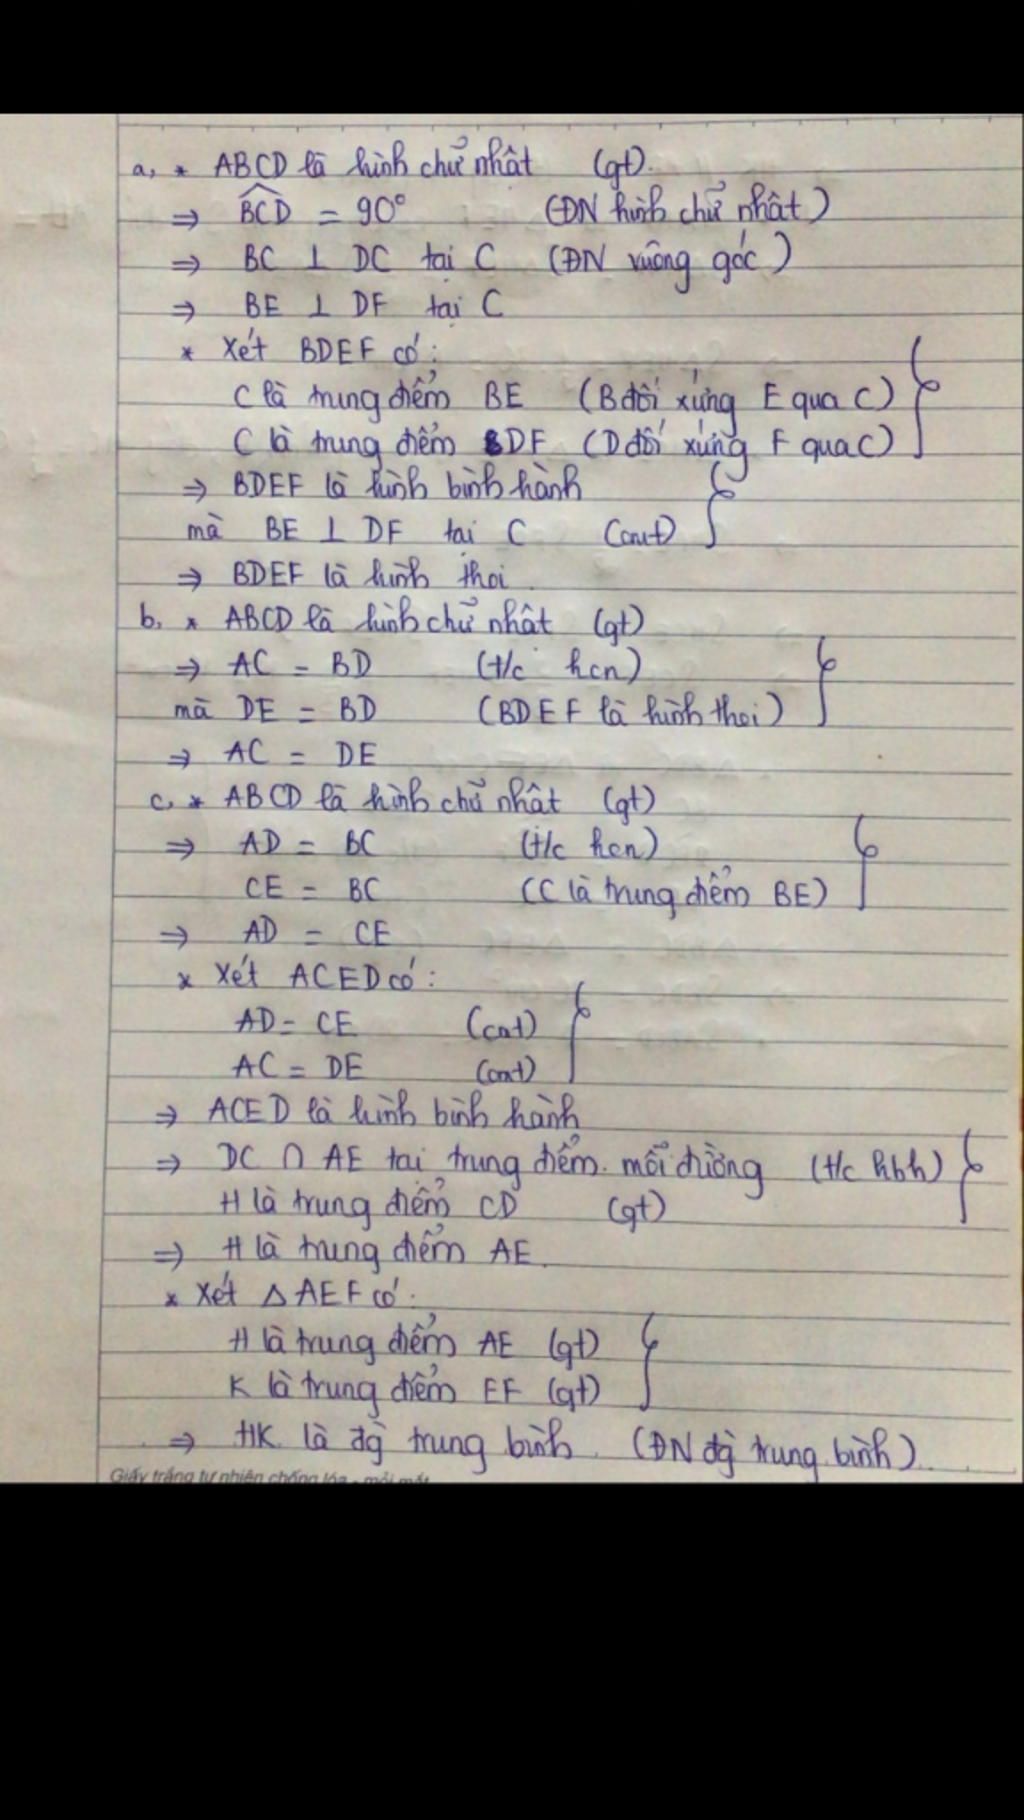 a, * ABCD là hình chữ nhật (gt).
⇒ BCD = 90° (ĐN hình chữ nhật)
⇒ BC ⊥ DC tại C (ĐN vuông góc)
⇒ BE ⊥ DF tại C
* Xét BDEF có:
C là trung điểm BE (B đối xứng E qua C)
C là trung điểm DF (D đối xứng F qua C)
⇒ BDEF là hình bình hành
mà BE ⊥ DF tại C (cmt)
⇒ BDEF là hình thoi.
b, * ABCD là hình chữ nhật (gt)
⇒ AC = BD (t/c hcn)
mà DE = BD (BDEF là hình thoi)
⇒ AC = DE
c, * ABCD là hình chữ nhật (gt)
⇒ AD = BC (t/c hcn)
CE = BC (C là trung điểm BE)
⇒ AD = CE
* Xét ACED có:
AD = CE (cmt)
AC = DE (cmt)
⇒ ACED là hình bình hành
⇒ DC ∩ AE tại trung điểm mỗi đường (t/c hbh)
H là trung điểm CD (gt)
⇒ H là trung điểm AE.
* Xét △AEF có:
H là trung điểm AE (gt)
K là trung điểm EF (gt)
⇒ HK là đg̀ trung bình. (ĐN đg̀ trung bình).
Giấy trắng tự nhiên chống lóa - mỏi mắt